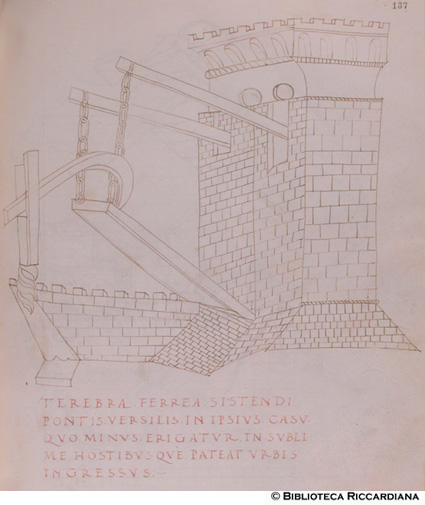 137
TEREBRA FERREA SISTENDI
PONTIS VERSILIS IN IPSIVS CASV.
QVO MINVS ERIGATVR IN SVBLI
ME HOSTIBVSQVE PATEAT VRBIS
INGRESSVS.
© BIBLIOTECA RICCARDIANA